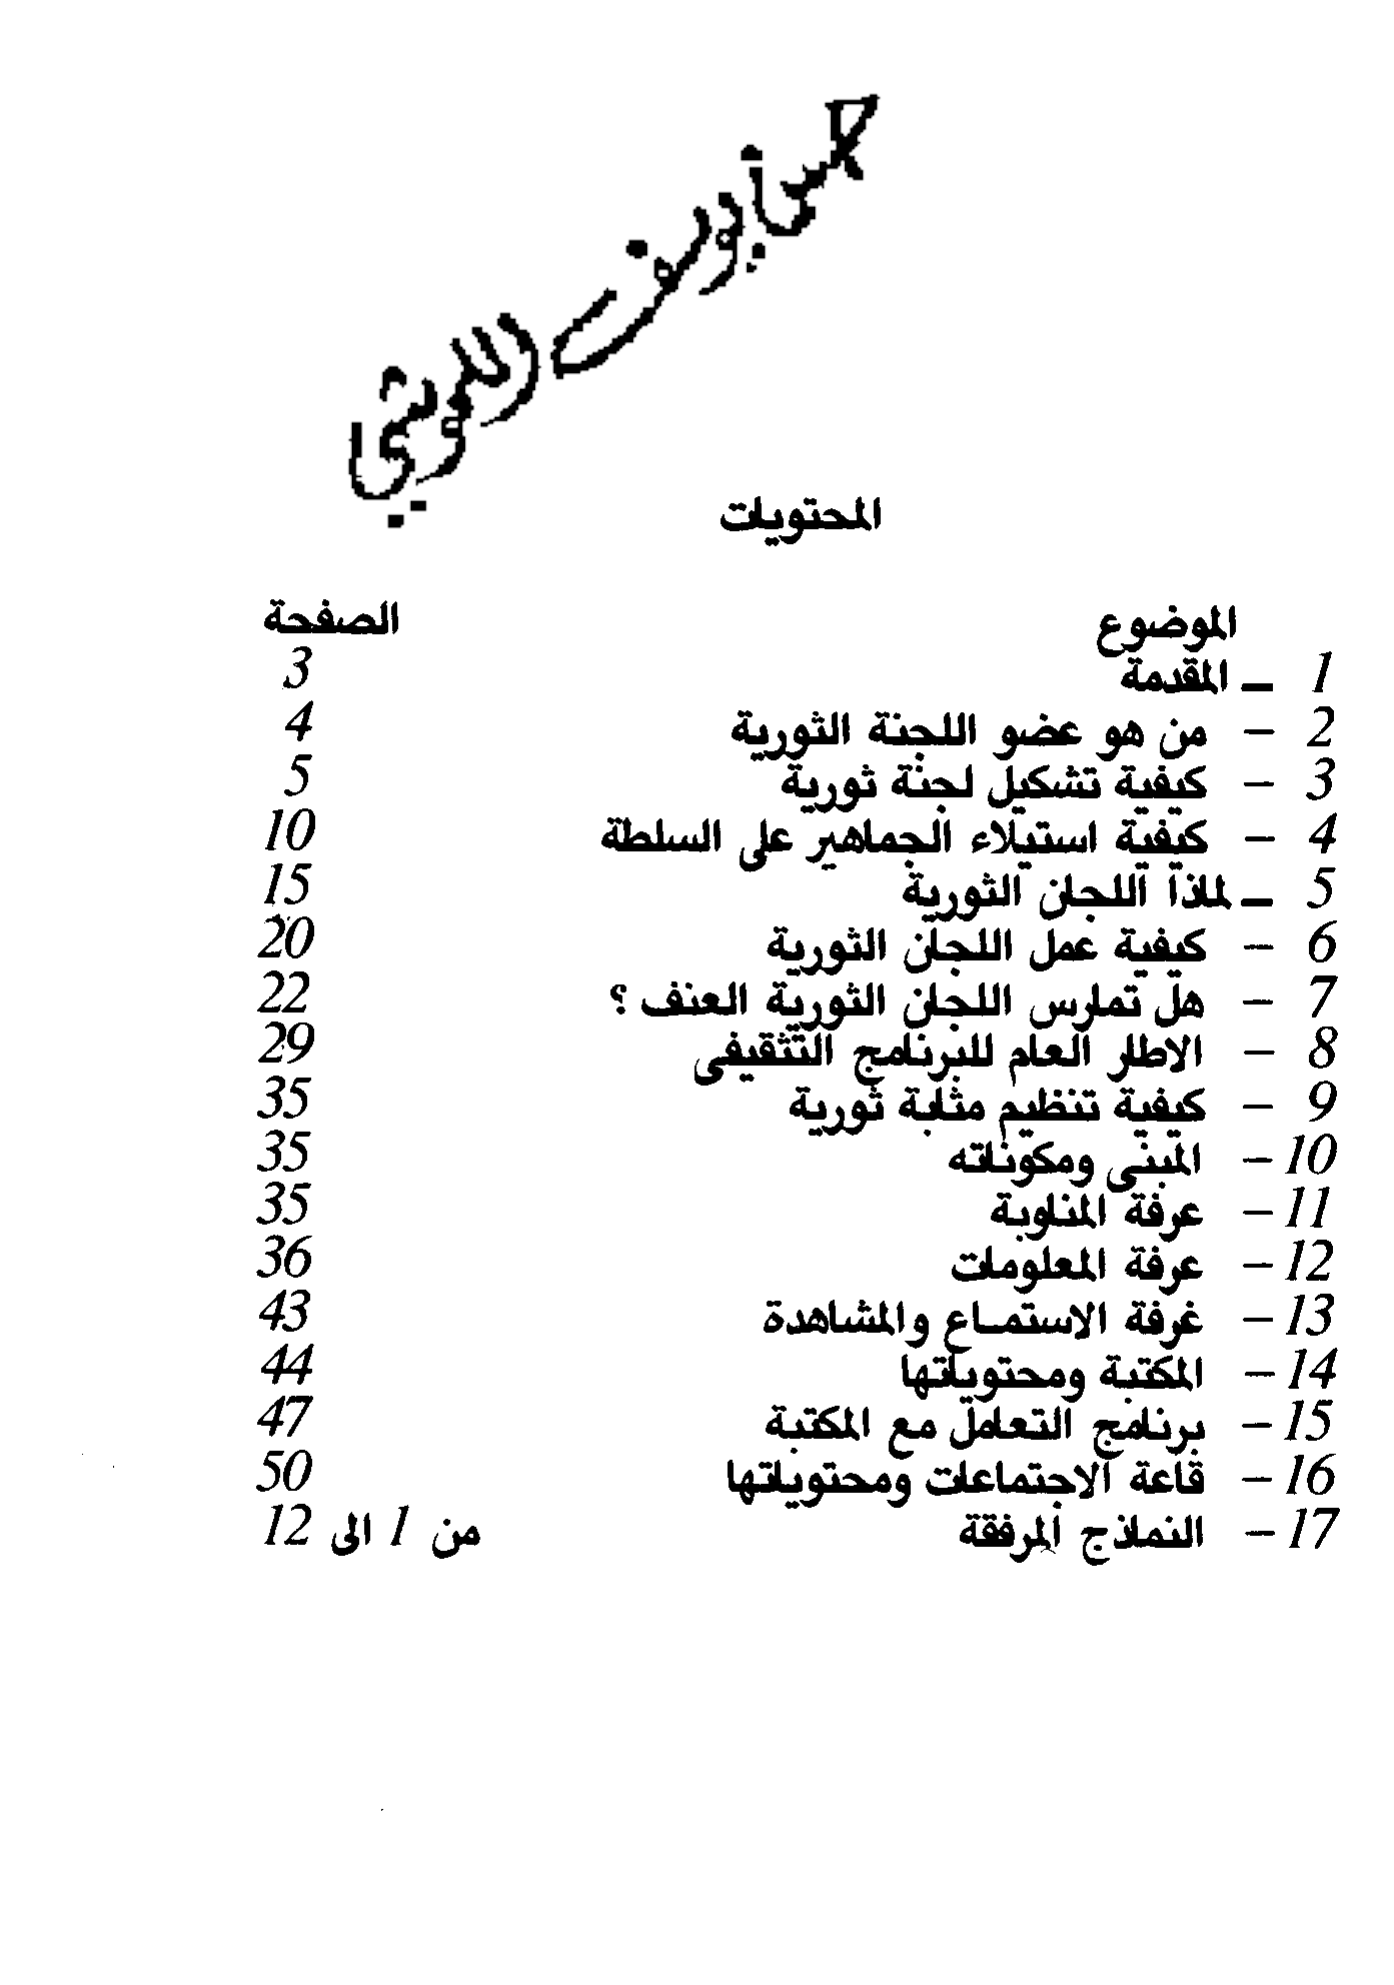 المحتويات
الموضوع الصفحة
1 ـ المقدمة 3
2 - من هو عضو اللجنة الثورية 4
3 - كيفية تشكيل لجنة ثورية 5
4 - كيفية استيلاء الجماهير على السلطة 10
5 ـ لماذا اللجان الثورية 15
6 - كيفية عمل اللجان الثورية 20
7 - هل تمارس اللجان الثورية العنف ؟ 22
8 - الاطار العام للبرنامج التثقيفى 29
9 - كيفية تنظيم مثابة ثورية 35
10 - المبنى ومكوناته 35
11 - عرفة المناوبة 35
12 - عرفة المعلومات 36
13 - غرفة الاستماع والمشاهدة 43
14 - المكتبة ومحتوياتها 44
15 - برنامج التعامل مع المكتبة 47
16 - قاعة الاجتماعات ومحتوياتها 50
17 - النماذج المرفقة من 1 الى 12